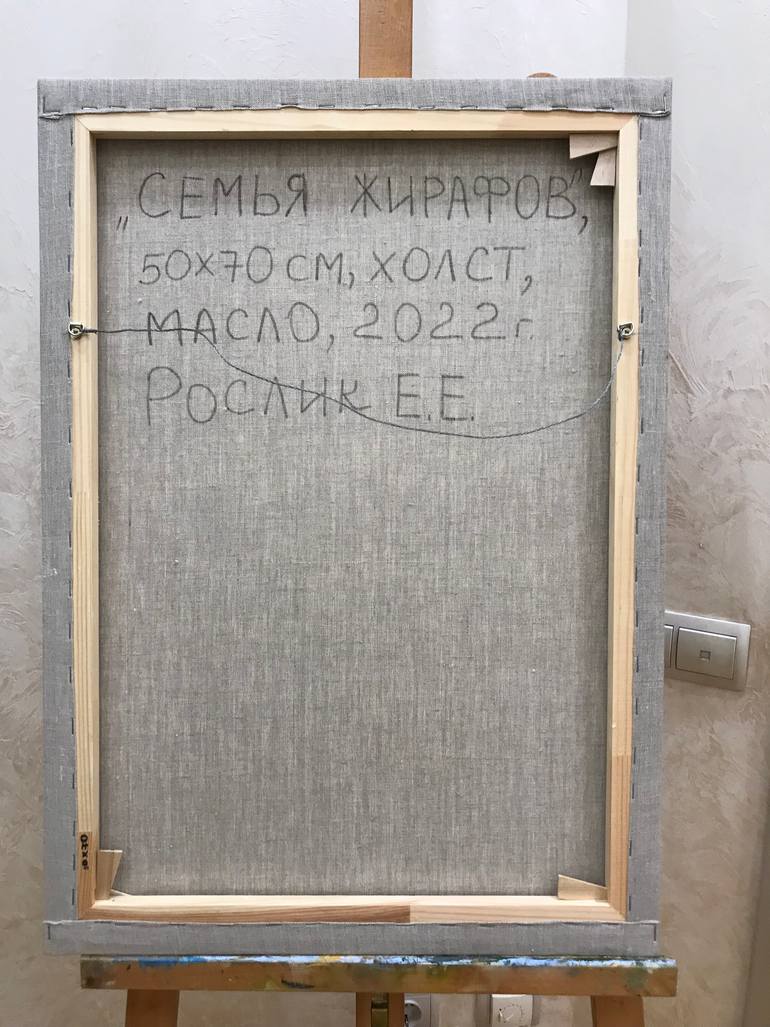 „СЕМЬЯ ЖИРАФОВ",
50х70 СМ, ХОЛСТ,
МАСЛО, 2022г.
РОСЛИК Е.Е.